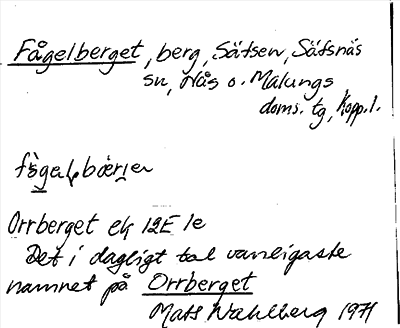 Fågelberget, berg, Säfsen, Säfsnäs
sn, Nås o. Malungs
doms. tg, Kopp. l.
Orrberget ek 12E 1e
Det i dagligt tal vanligaste
namnet på Orrberget
Mats Wahlberg 1971